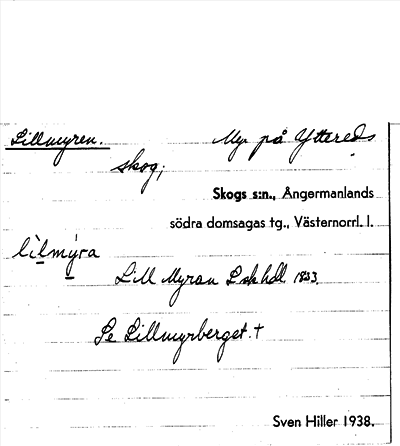 Lillmyren. Myr på Yttereds
skog;
Skogs s:n., Ångermanlands
södra domsagas tg., Västernorrl. l.
lilmýra
Lill Myran L sk hdl. 1883.
Se Lillmyrberget. +
Sven Hiller 1938.